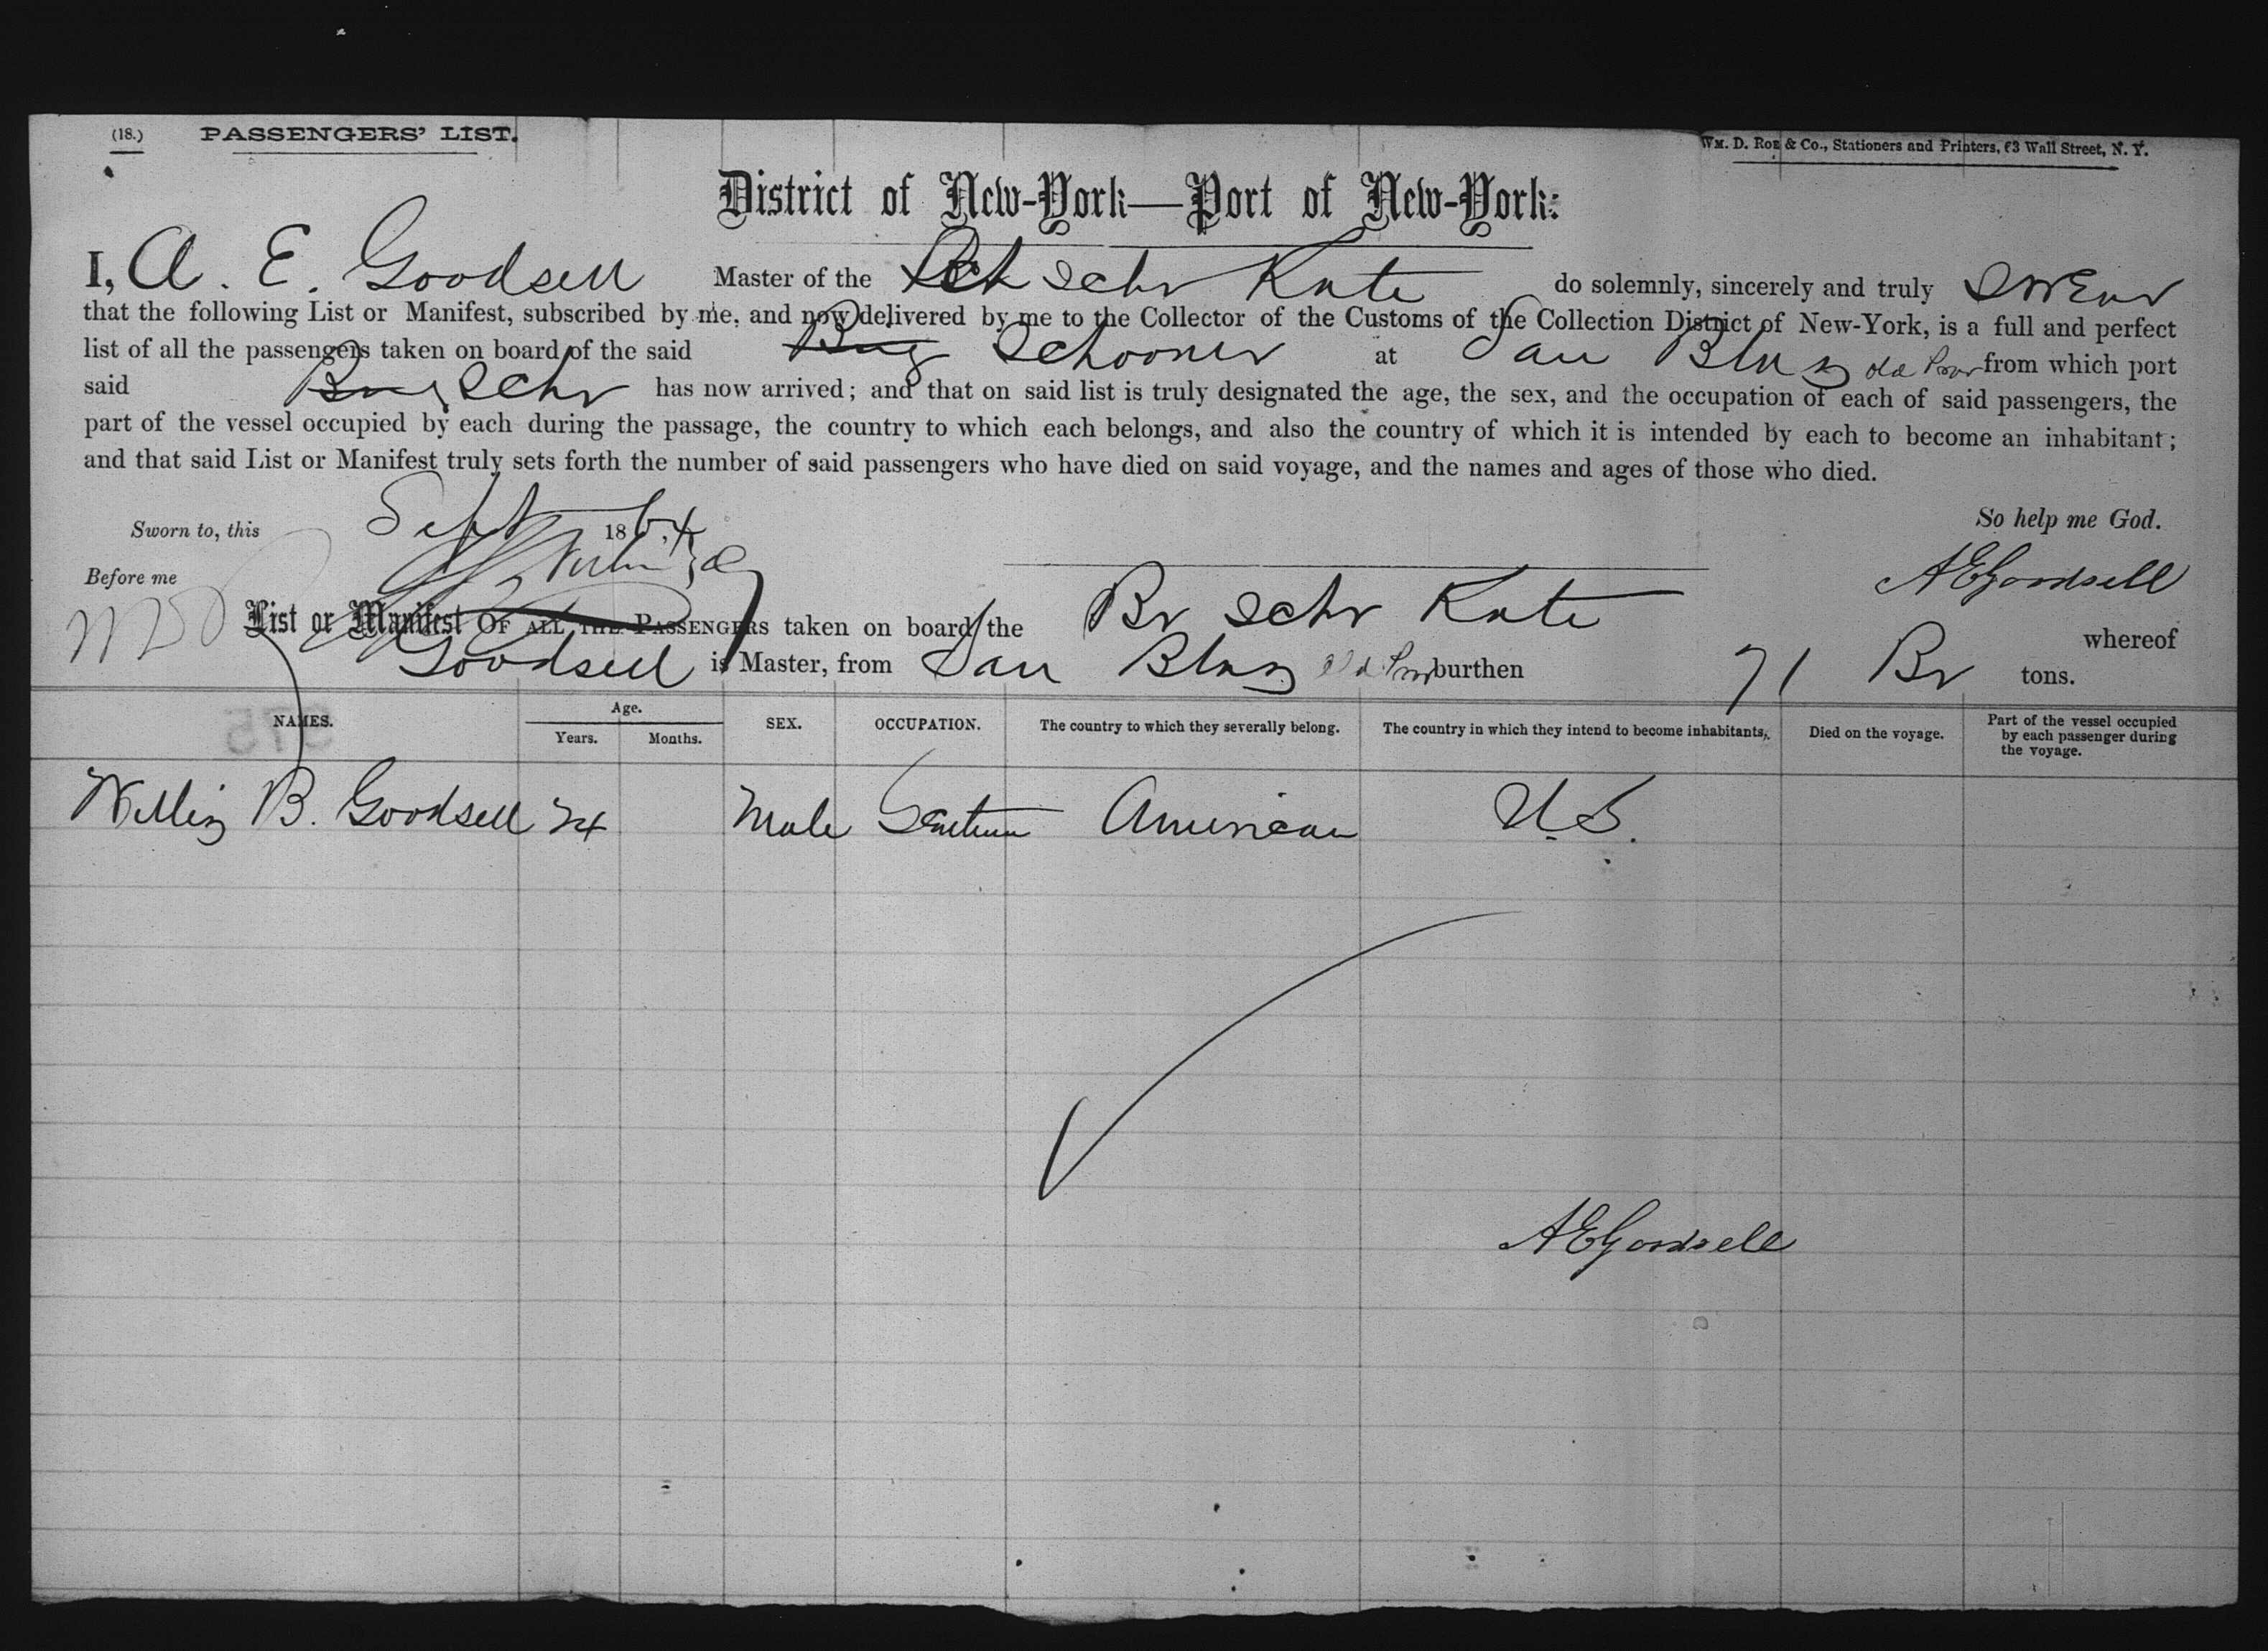 (18.) PASSENGERS' LIST.
Wm. D. Roe & Co., Stationers and Printers, 63 Wall Street, N. Y.
District of New-York—Port of New-York:
I, A. E. Goodsell Master of the Schr Kate do solemnly, sincerely and truly swear
that the following List or Manifest, subscribed by me, and now delivered by me to the Collector of the Customs of the Collection District of New-York, is a full and perfect
list of all the passengers taken on board of the said Brig Schooner at San Blas from which port
said Brig Schr has now arrived; and that on said list is truly designated the age, the sex, and the occupation of each of said passengers, the
part of the vessel occupied by each during the passage, the country to which each belongs, and also the country of which it is intended by each to become an inhabitant;
and that said List or Manifest truly sets forth the number of said passengers who have died on said voyage, and the names and ages of those who died.
Sworn to, this Sept 1864 So help me God.
Before me A E Goodsell
List or Manifest OF ALL THE PASSENGERS taken on board the Br Schr Kate whereof
Goodsell is Master, from San Blas burthen 71 Br tons.
NAMES. Age. Years. Months. SEX. OCCUPATION. The country to which they severally belong. The country in which they intend to become inhabitants. Died on the voyage. Part of the vessel occupied by each passenger during the voyage.
B. Goodsell 24 Male American U.S.
A E Goodsell